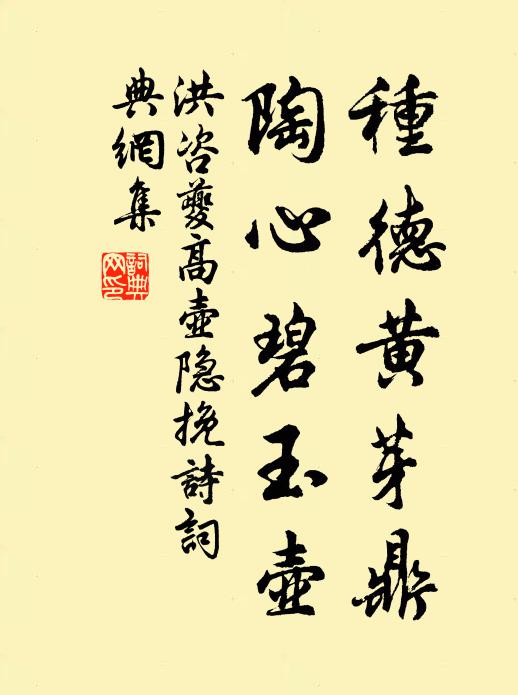 種德黄芽鼎
陶心碧玉壺
洪咨夔高壺隐挽詩詞
典網集
詞典
网印